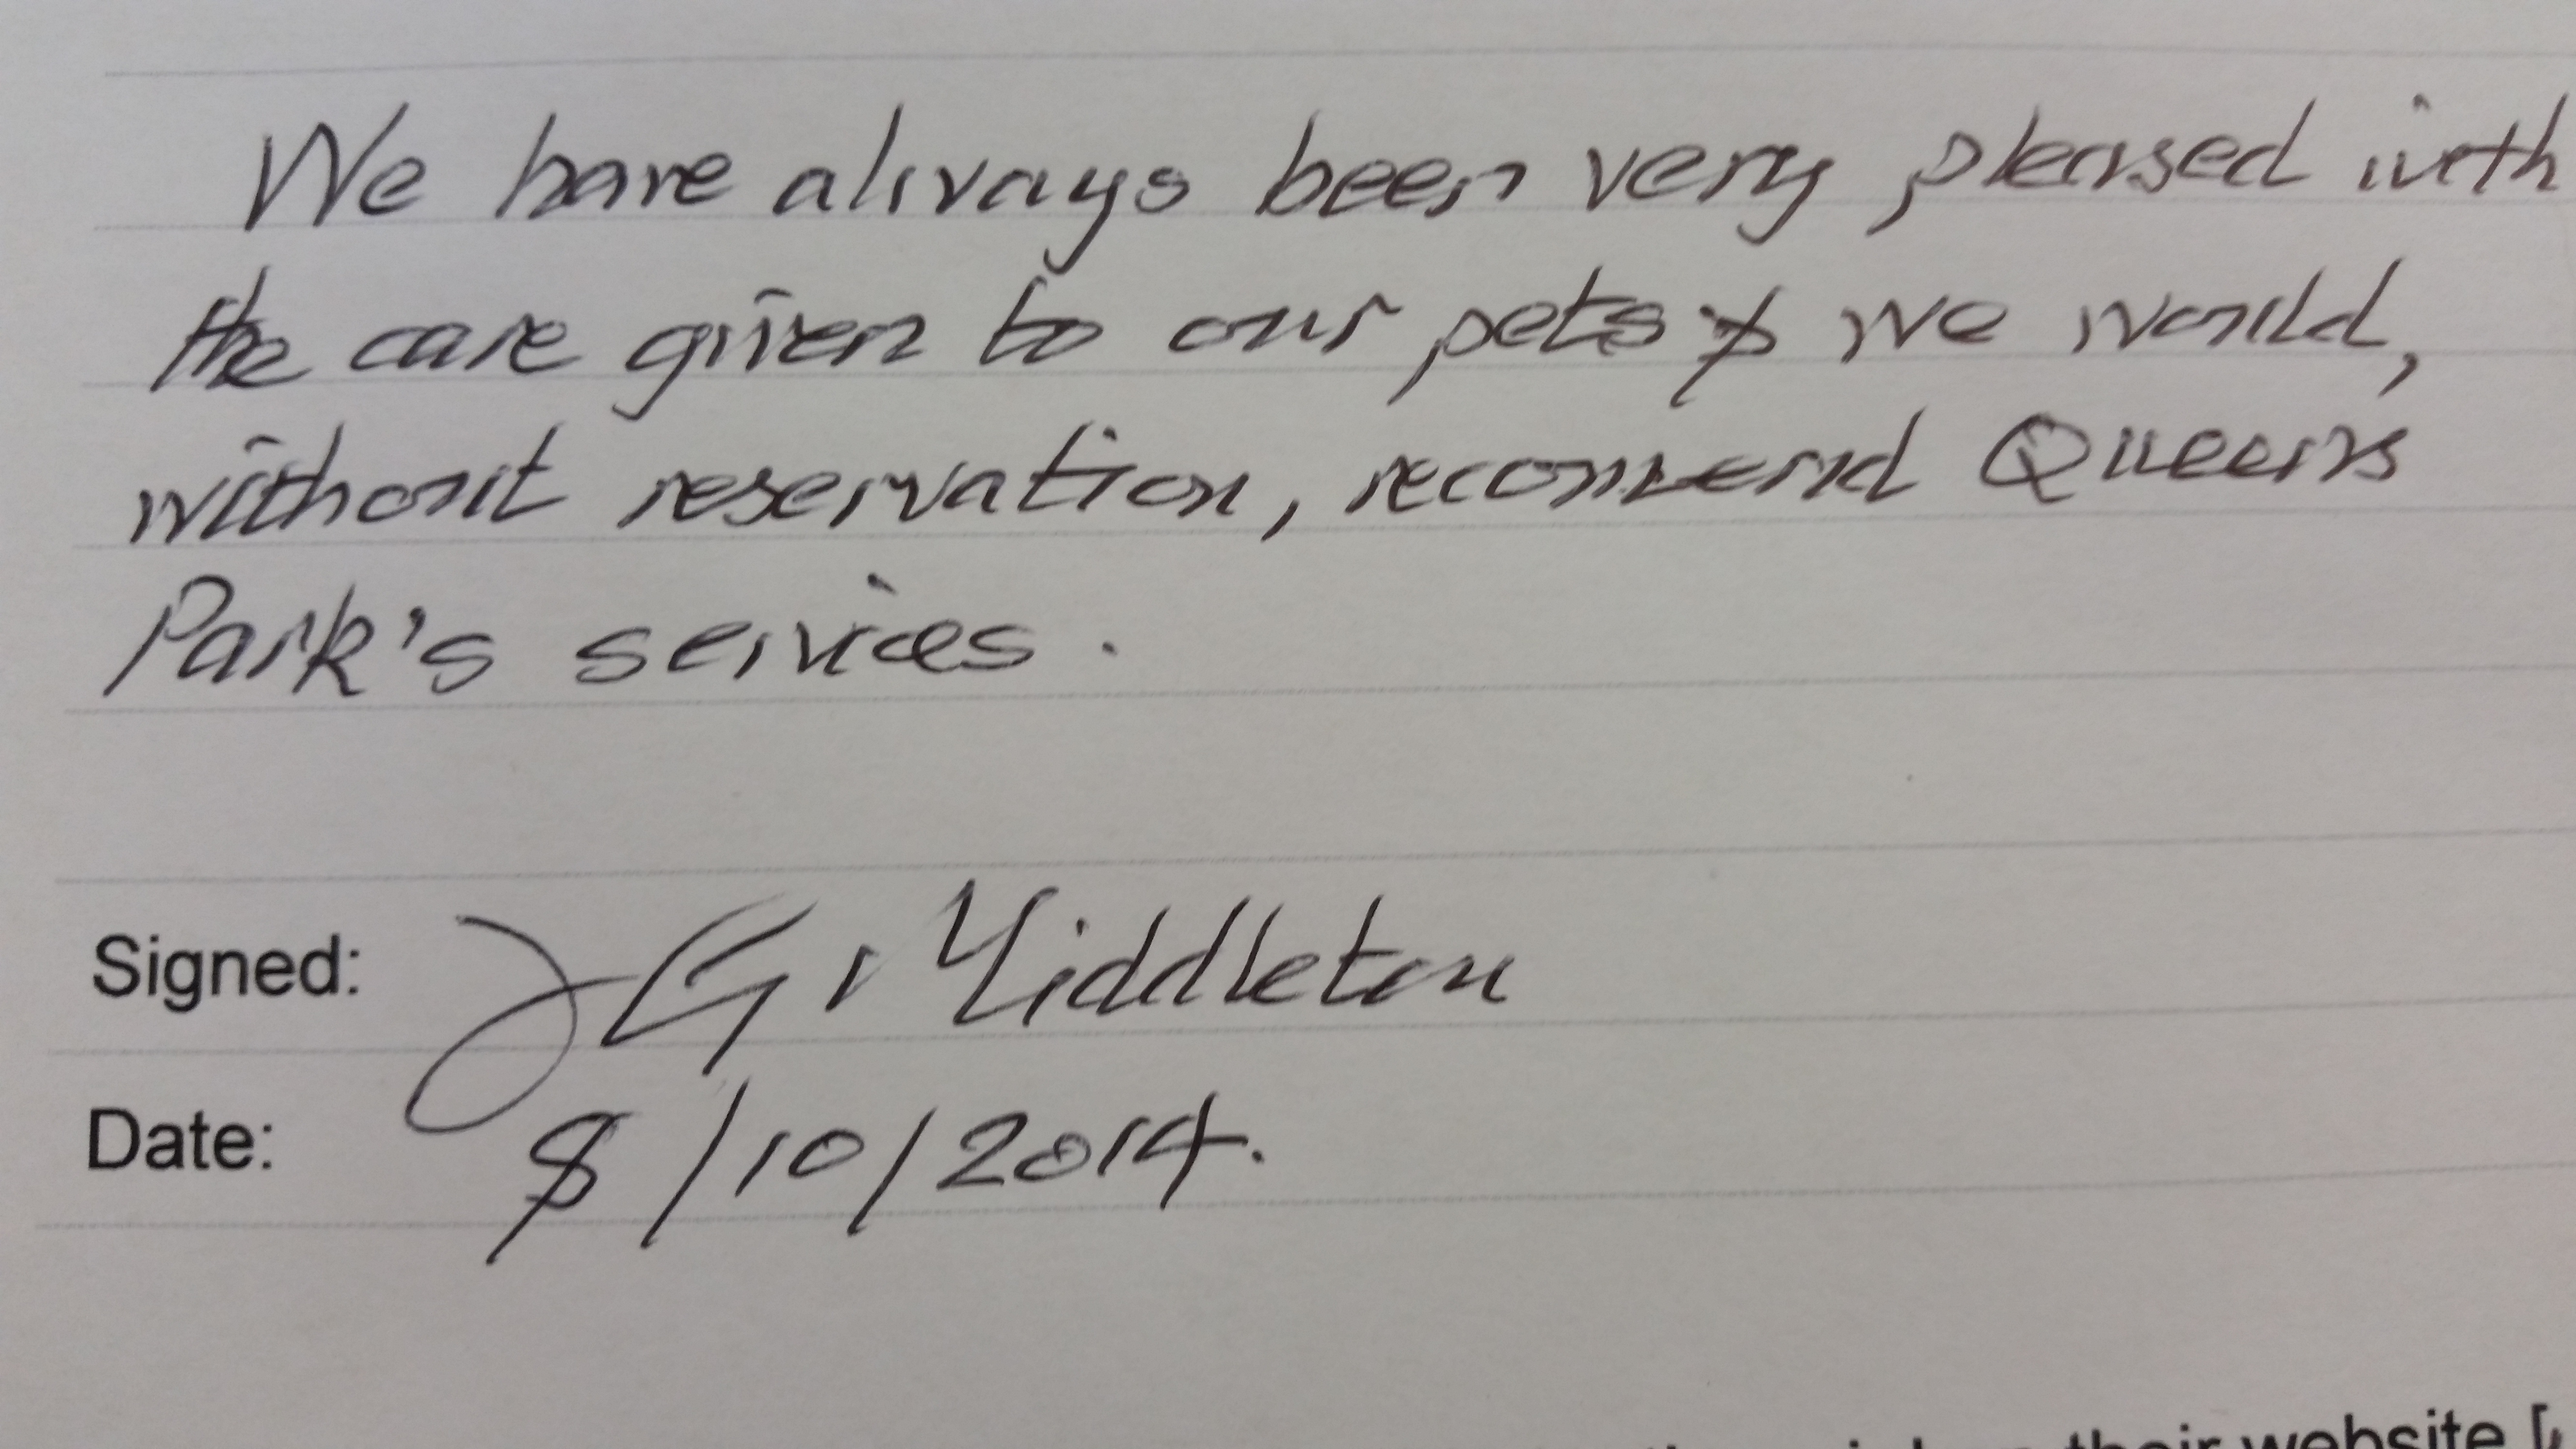 We have always been very pleased with
the care given to our pets & we would,
without reservation, recommend Queens
Park's services.
Signed: G. Middleton
Date: 8/10/2014.
their website [